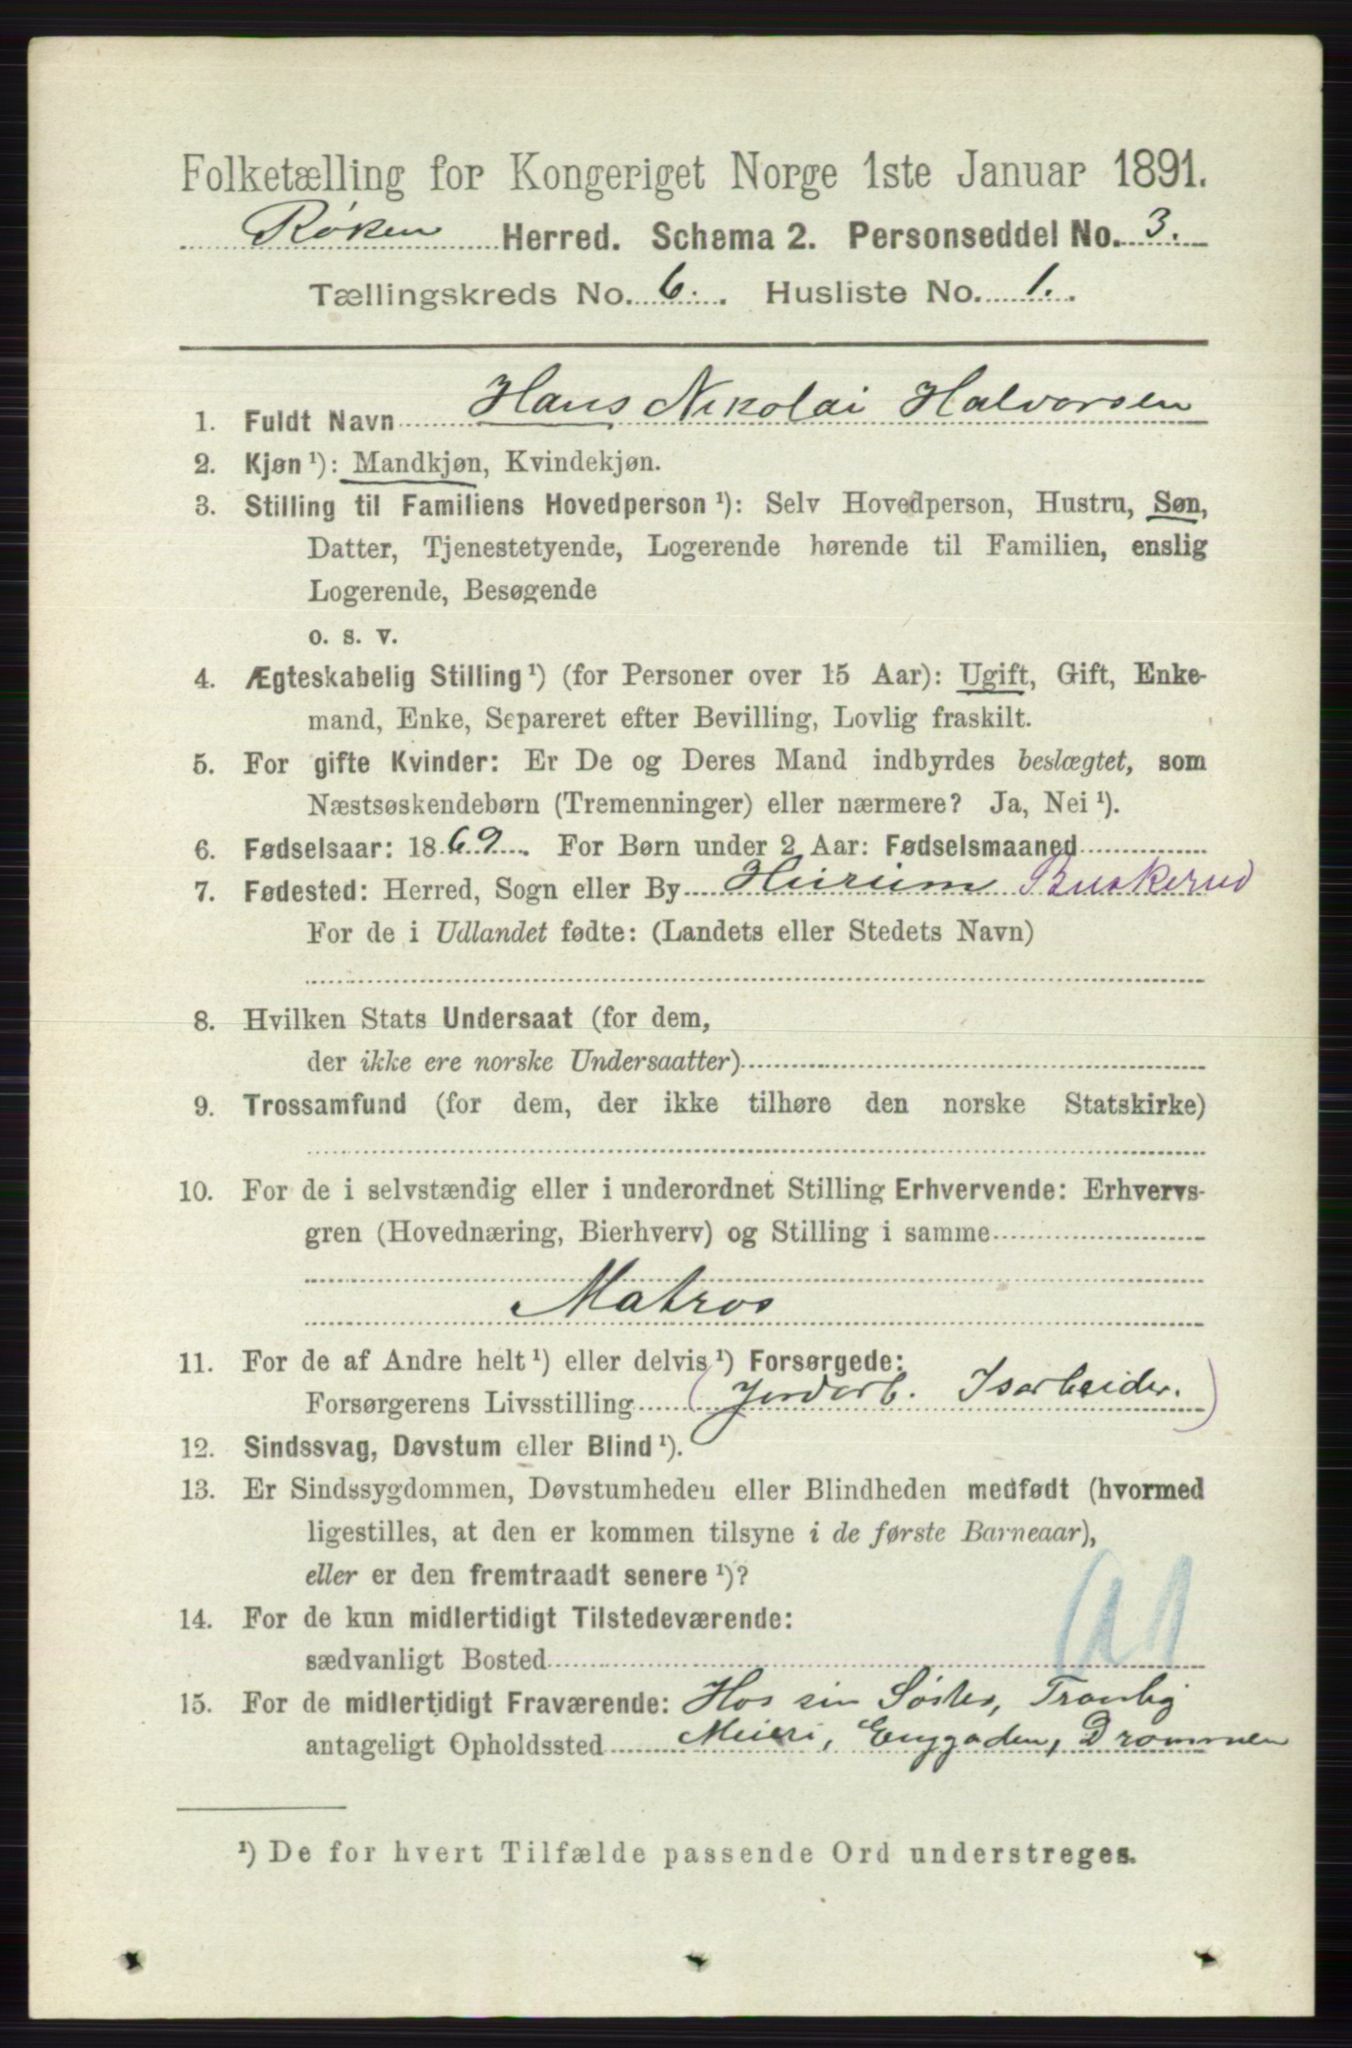 Folketælling for Kongeriget Norge 1ste Januar 1891.
Røken Herred. Schema 2. Personseddel No. 3.
Tællingskreds No. 6. Husliste No. 1.
1. Fuldt Navn Hans Nikolai Halvorsen
2. Kjøn ¹): Mandkjøn, Kvindekjøn.
3. Stilling til Familiens Hovedperson ¹): Selv Hovedperson, Hustru, Søn,
Datter, Tjenestetyende, Logerende hørende til Familien, enslig
Logerende, Besøgende
o. s. v.
4. Ægteskabelig Stilling ¹) (for Personer over 15 Aar): Ugift, Gift, Enke-
mand, Enke, Separeret efter Bevilling, Lovlig fraskilt.
5. For gifte Kvinder: Er De og Deres Mand indbyrdes beslægtet, som
Næstsøskendebørn (Tremenninger) eller nærmere? Ja, Nei ¹).
6. Fødselsaar: 1869. For Børn under 2 Aar: Fødselsmaaned
7. Fødested: Herred, Sogn eller By Hurum Buskerud
For de i Udlandet fødte: (Landets eller Stedets Navn)
8. Hvilken Stats Undersaat (for dem,
der ikke ere norske Undersaatter)
9. Trossamfund (for dem, der ikke tilhøre den norske Statskirke)
10. For de i selvstændig eller i underordnet Stilling Erhvervende: Erhvervs-
gren (Hovednæring, Bierhverv) og Stilling i samme
Matros
11. For de af Andre helt ¹) eller delvis ¹) Forsørgede:
Forsørgerens Livsstilling (Jordarb. Isarbeider.)
12. Sindssvag, Døvstum eller Blind ¹).
13. Er Sindssygdommen, Døvstumheden eller Blindheden medfødt (hvormed
ligestilles, at den er kommen tilsyne i de første Barneaar),
eller er den fremtraadt senere ¹)?
14. For de kun midlertidigt Tilstedeværende:
sædvanligt Bosted
15. For de midlertidigt Fraværende: Hos sin Søster,
antageligt Opholdssted Meieri, Enggaden, Drammen
¹) De for hvert Tilfælde passende Ord understreges.